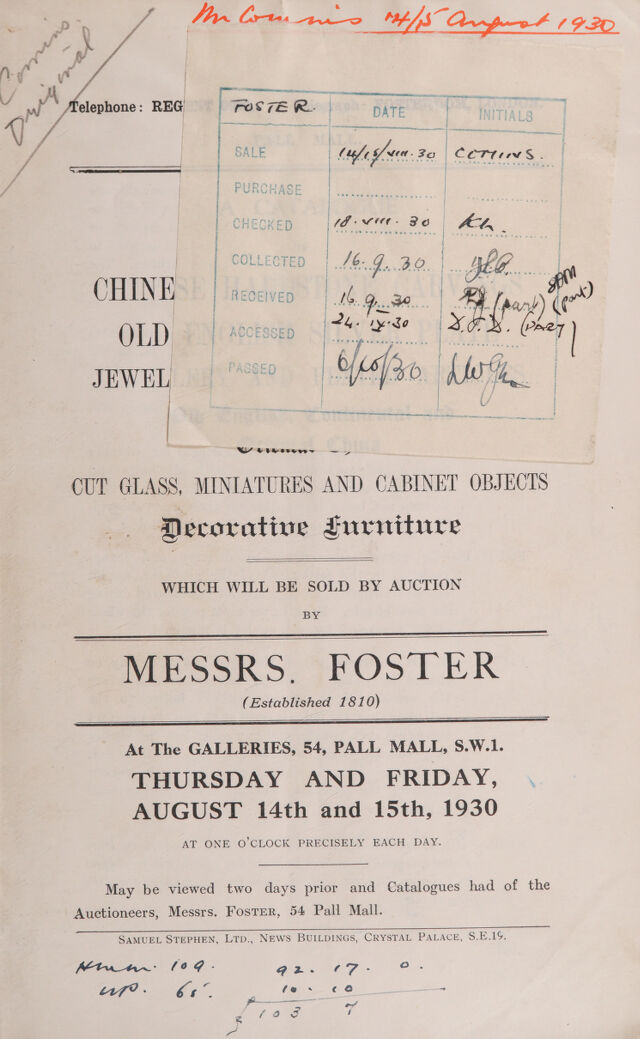 Mr Comins 14/15 August 1930
Comins
Original
Telephone: REG
FOSTER. DATE INITIALS
SALE 14/15/VIII.30 COMINS.
PURCHASE
CHECKED 18.VIII.30 Kh.
COLLECTED 16.9.30
RECEIVED 16.9.30 (part) SPM (part)
ACCESSED 24.IX.30 D.F.D. (PART)
PASSED 6/10/30
CHINE
OLD
JEWEL
CUT GLASS, MINIATURES AND CABINET OBJECTS
Decorative Furniture
WHICH WILL BE SOLD BY AUCTION
BY
MESSRS. FOSTER
(Established 1810)
At The GALLERIES, 54, PALL MALL, S.W.1.
THURSDAY AND FRIDAY,
AUGUST 14th and 15th, 1930
AT ONE O'CLOCK PRECISELY EACH DAY.
May be viewed two days prior and Catalogues had of the
Auctioneers, Messrs. FOSTER, 54 Pall Mall.
SAMUEL STEPHEN, LTD., NEWS BUILDINGS, CRYSTAL PALACE, S.E.19.
109. 92. 17. 0.
65. 10. 10
103 7